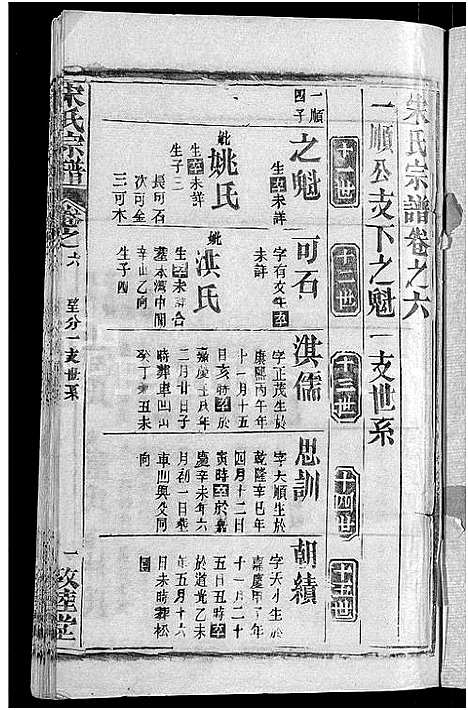 宋氏宗譜卷之六
一順公支下之魁一支世系
十一世
十二世
十三世
十四世
十五世
一順
四子
之魁
生卒未詳
妣姚氏
生卒未詳
生子三
長可石
次可全
三可木
可石
字有文生卒
未詳
妣洪氏
生卒未詳合
墓木灣中間
辛山乙向
生子四
淇儒
字正茂生於
康熙丙午年
十一月十五
日亥時卒於
嘉慶壬戌年
二月廿日子
時葬車凹出
癸丁兼丑未
思訓
字大順生於
乾隆辛巳年
四月十二日
寅時卒於嘉
慶辛未年六
月初一日葬
車凹與父同
向
朝績
字天小生於
嘉慶甲子年
十一月二十
五日丑時卒
於道光乙未
年五月十六
日未時葬松
園
宋氏宗譜
卷之六
至分一支世系
一
敦睦堂